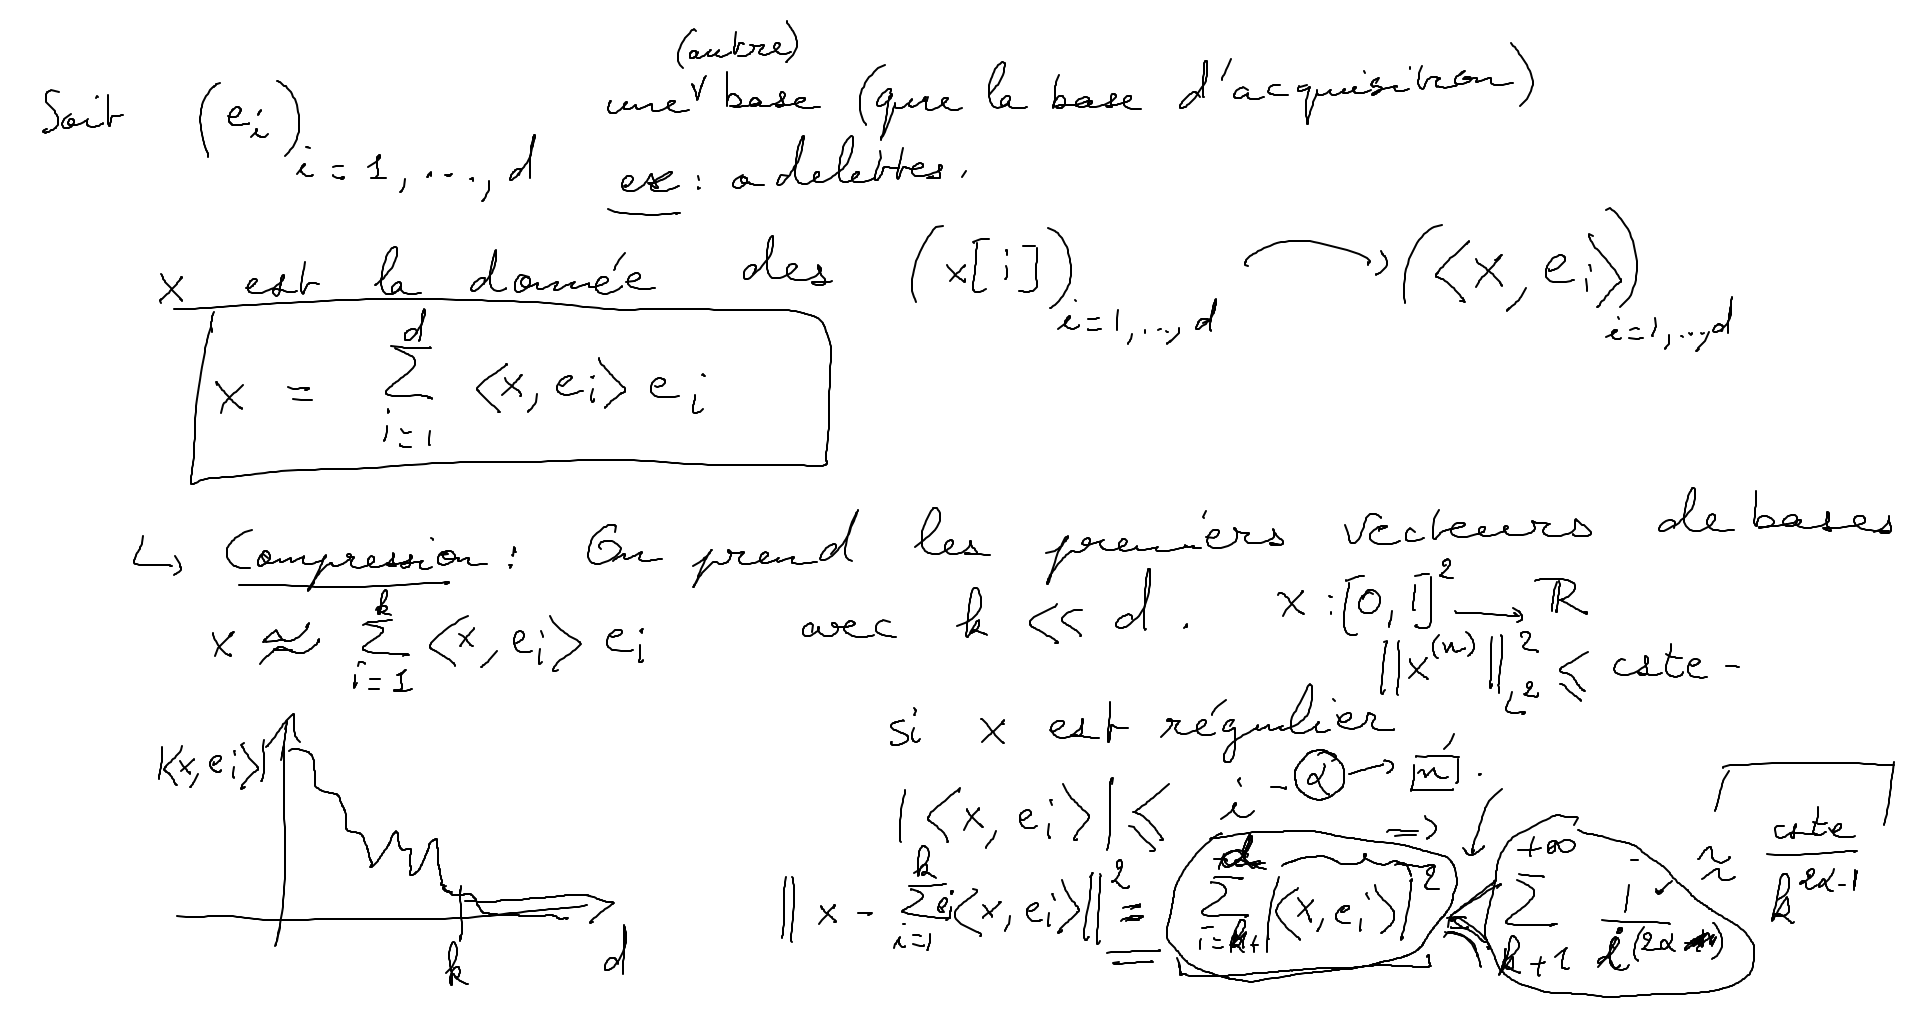 (autre)
Soit (e_i)_{i=1,...,d} une ∨ base (que la base d'acquisition)
ex : odelettes.
x est la donnée des (x[i])_{i=1,...,d} → (<x, e_i>)_{i=1,...,d}
x = ∑_{i=1}^{d} <x, e_i> e_i
↳ Compression : On prend les premiers vecteurs de bases
x ≈ ∑_{i=1}^{k} <x, e_i> e_i avec k << d. x : [0,1]^2 → ℝ
||x^{(n)}||^2_{L^2} ≤ cste -
si x est régulier
|<x, e_i>| ≤ i^{-α} → n.
|<x, e_i>|
||x - ∑_{i=1}^{k} e_i <x, e_i>||^2 = ∑_{i=k+1}^{d} |<x, e_i>|^2 ⇒ ≤ ∑_{k+1}^{+∞} 1/i^{(2α)} ≈ cste/k^{2α-1}
k d